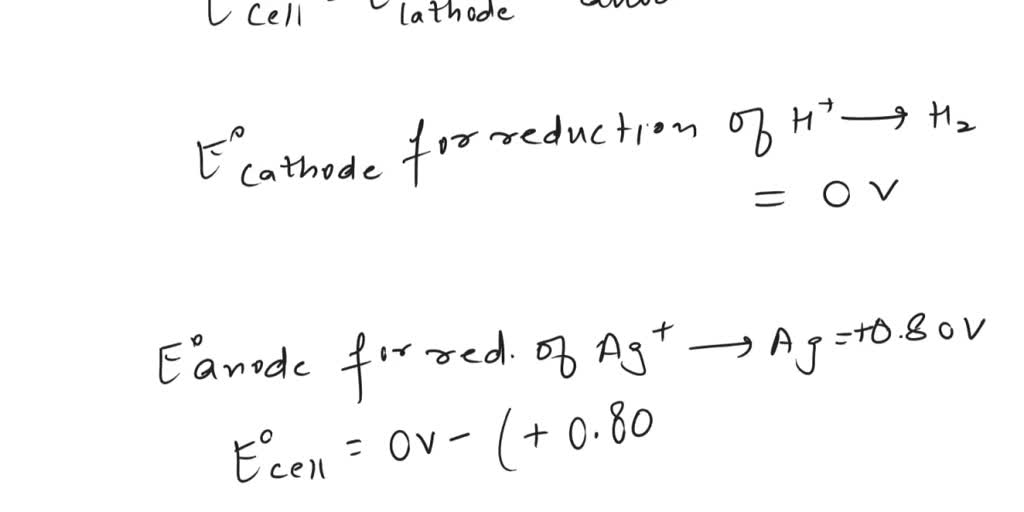 Cell Cathode
E°cathode for reduction of H⁺ → H₂
= 0 V
E°anode for red. of Ag⁺ → Ag = +0.80V
E°cell = 0V - (+ 0.80